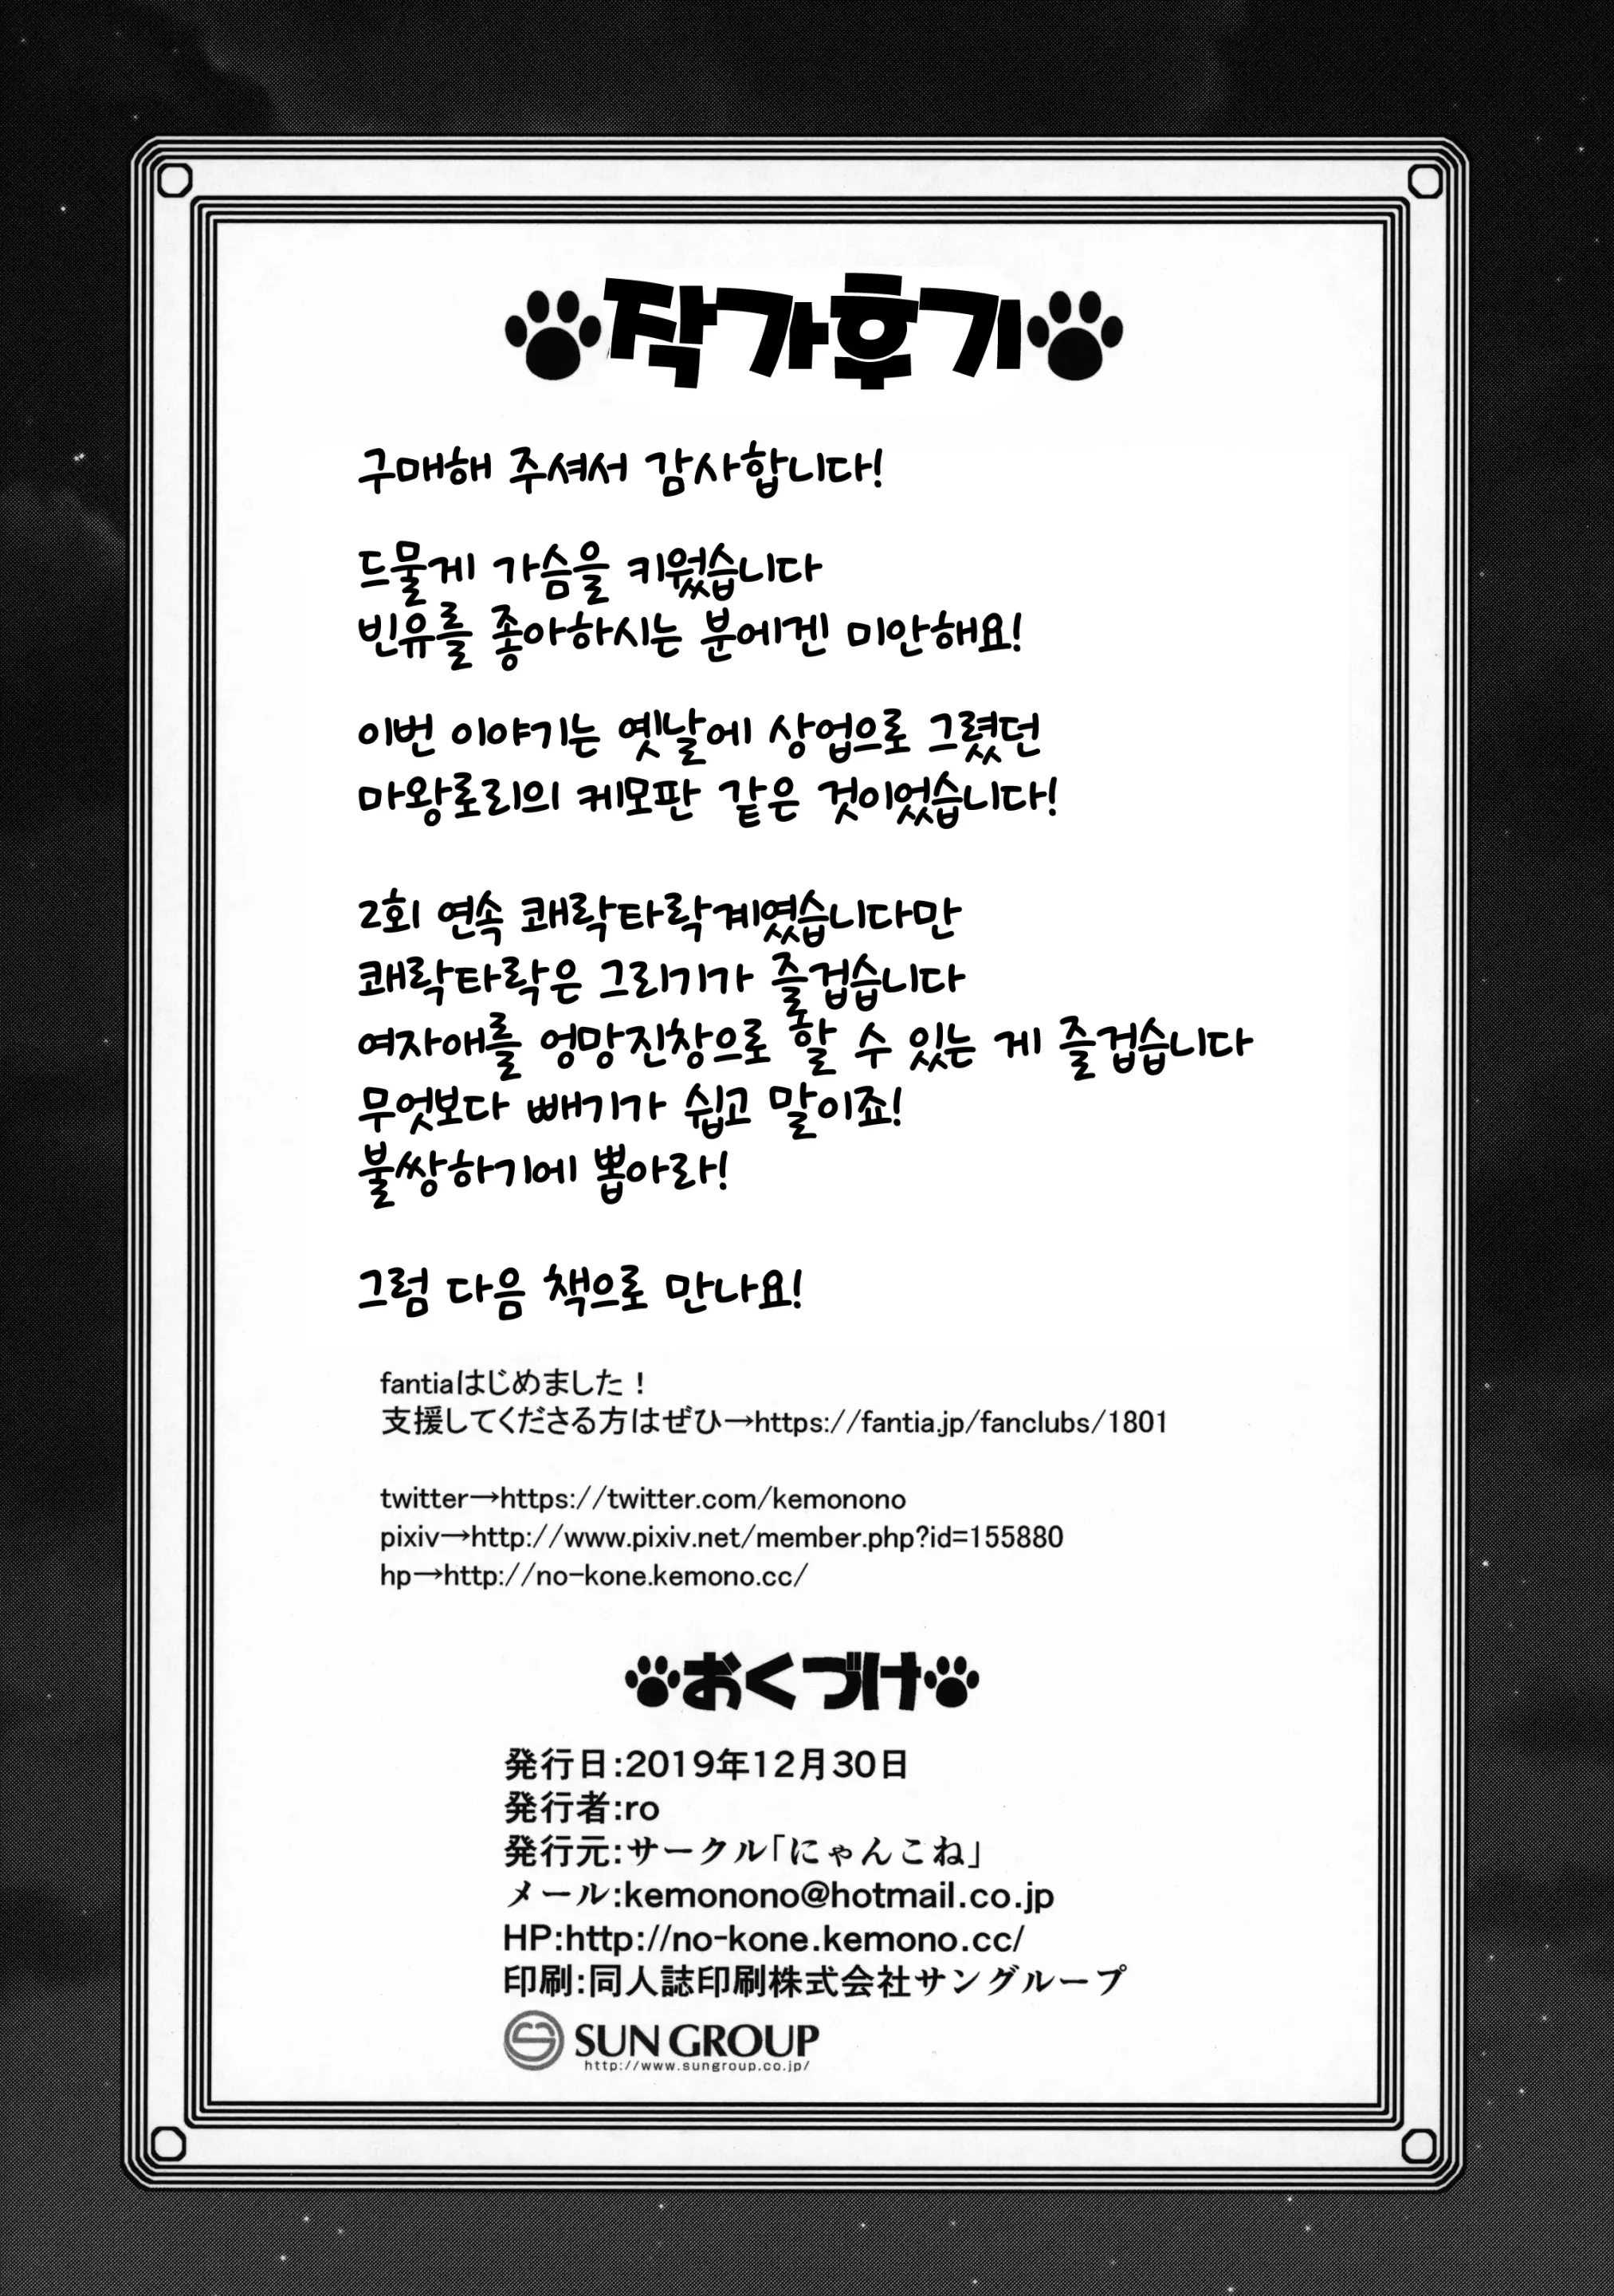 작가후기
구매해 주셔서 감사합니다!
드물게 가슴을 키웠습니다
빈유를 좋아하시는 분에겐 미안해요!
이번 이야기는 옛날에 상업으로 그렸던
마왕로리의 케모판 같은 것이었습니다!
2회 연속 쾌락타락계였습니다만
쾌락타락은 그리기가 즐겁습니다
여자애를 엉망진창으로 할 수 있는 게 즐겁습니다
무엇보다 빼기가 쉽고 말이죠!
불쌍하기에 뽑아라!
그럼 다음 책으로 만나요!
fantiaはじめました！
支援してくださる方はぜひ→https://fantia.jp/fanclubs/1801
twitter→https://twitter.com/kemonono
pixiv→http://www.pixiv.net/member.php?id=155880
hp→http://no-kone.kemono.cc/
おくづけ
発行日:2019年12月30日
発行者:ro
発行元:サークル「にゃんこね」
メール:kemonono@hotmail.co.jp
HP:http://no-kone.kemono.cc/
印刷:同人誌印刷株式会社サングループ
SUN GROUP
http://www.sungroup.co.jp/